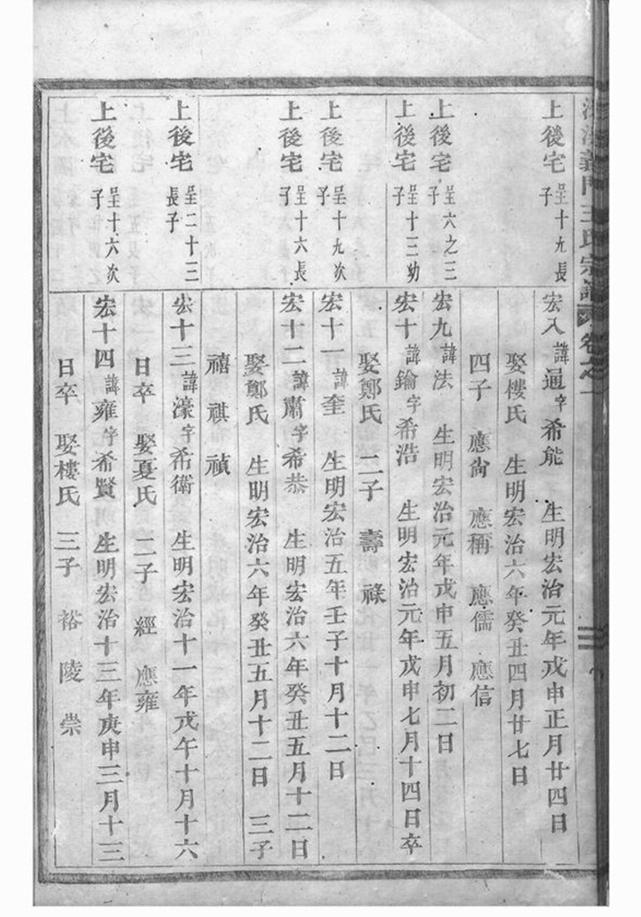 義門王氏宗譜 卷之一
上後宅 呈十九長子 宏八諱通字希能 生明宏治元年戊申正月廿四日
娶樓氏 生明宏治六年癸丑四月廿七日
四子 應尚 應稱 應儒 應信
上後宅 呈六之三子 宏九諱法 生明宏治元年戊申五月初二日
上後宅 呈十三幼子 宏十諱鑰字希浩 生明宏治元年戊申七月十四日卒
娶鄭氏 二子 壽 祿
上後宅 呈十九次子 宏十一諱奎 生明宏治五年壬子十月十二日
上後宅 呈十六長子 宏十二諱肅字希恭 生明宏治六年癸丑五月十二日
娶鄭氏 生明宏治六年癸丑五月十二日 三子
禧 祺 禎
上後宅 呈二十三長子 宏十三諱濠字希衛 生明宏治十一年戊午十月十六
日卒 娶夏氏 二子 經 應雍
上後宅 呈十六次子 宏十四諱雍字希賢 生明宏治十三年庚申三月十三
日卒 娶樓氏 三子 裕 陵 崇